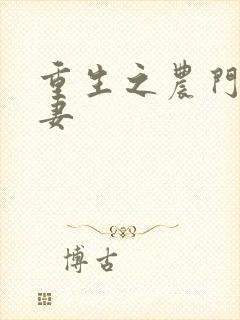 重生之農門
妻
博古